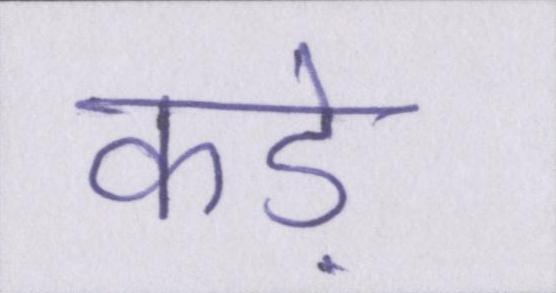 कड़े